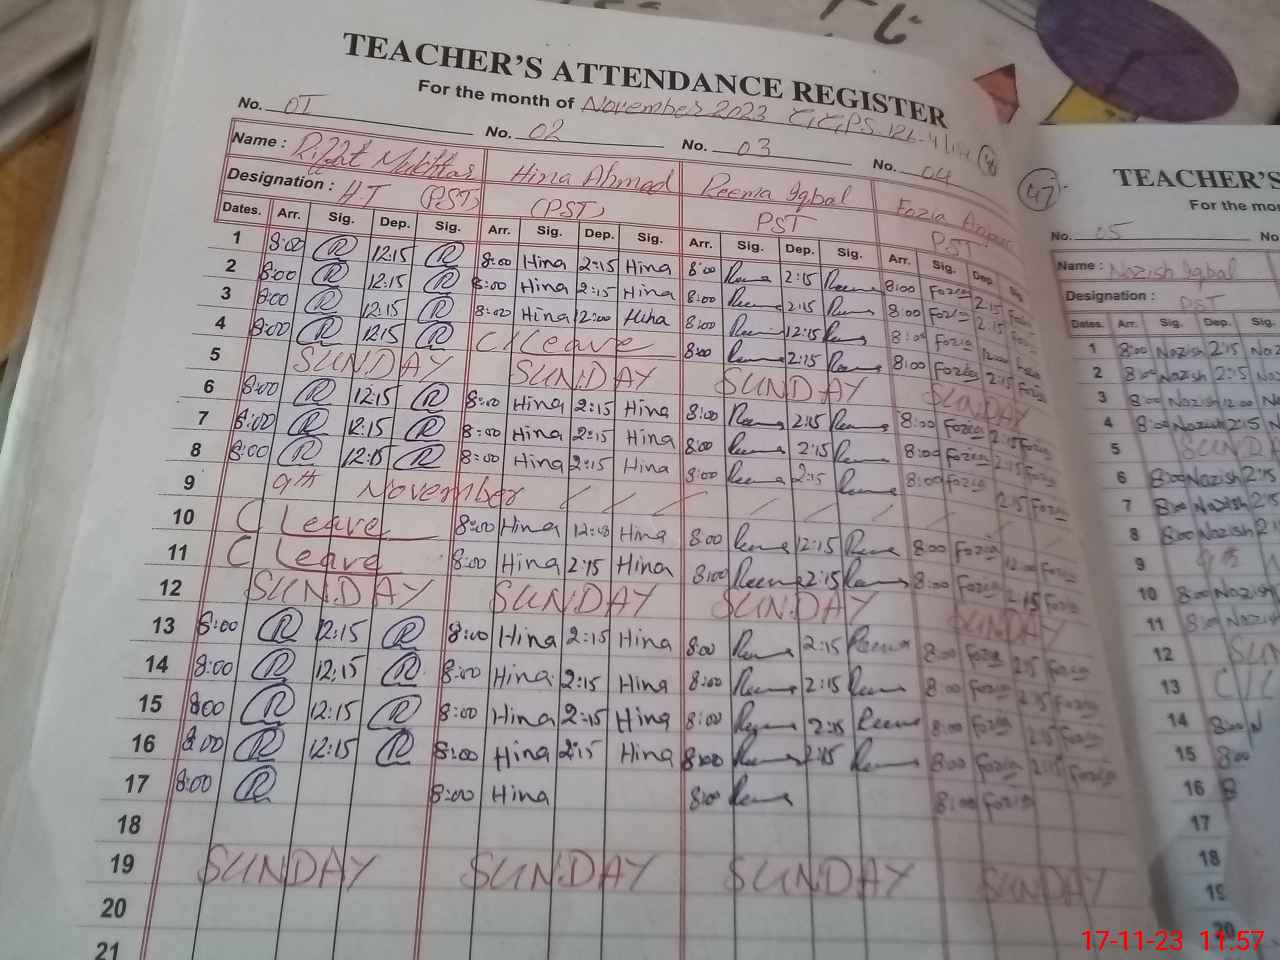 TEACHER'S ATTENDANCE REGISTER
For the month of November 2023
No. 01 No. 02 No. 03 No. 04
Name : Mukhtar Hina Ahmad Reema Iqbal Fozia
Designation : H.T (PST) (PST) PST PST
Dates. Arr. Sig. Dep. Sig. Arr. Sig. Dep. Sig. Arr. Sig. Dep. Sig. Arr. Sig. Dep. Sig.
1 8:00 R 12:15 R 8:00 Hina 2:15 Hina 8:00 Reema 2:15 Reema 8:00 Fozia 2:15 Fozia
2 8:00 R 12:15 R 8:00 Hina 2:15 Hina 8:00 Reema 2:15 Reema 8:00 Fozia 2:15 Fozia
3 8:00 R 12:15 R 8:00 Hina 12:00 Hina 8:00 Reema 12:15 Reema 8:00 Fozia 12:00 Fozia
4 8:00 R 12:15 R C/Leave 8:00 Reema 2:15 Reema 8:00 Fozia 2:15 Fozia
5 SUNDAY SUNDAY SUNDAY SUNDAY
6 8:00 R 12:15 R 8:00 Hina 2:15 Hina 8:00 Reema 2:15 Reema 8:00 Fozia 2:15 Fozia
7 8:00 R 12:15 R 8:00 Hina 2:15 Hina 8:00 Reema 2:15 Reema 8:00 Fozia 2:15 Fozia
8 8:00 R 12:15 R 8:00 Hina 2:15 Hina 8:00 Reema 2:15 Reema 8:00 Fozia 2:15 Fozia
9 9th November
10 C Leave 8:00 Hina Hina 8:00 Reema 12:15 Reema 8:00 Fozia 12:00 Fozia
11 C Leave 8:00 Hina 2:15 Hina 8:00 Reema 2:15 Reema 8:00 Fozia 2:15 Fozia
12 SUNDAY SUNDAY SUNDAY SUNDAY
13 8:00 R 12:15 R 8:00 Hina 2:15 Hina 8:00 Reema 2:15 Reema 8:00 Fozia 2:15 Fozia
14 8:00 R 12:15 R 8:00 Hina 2:15 Hina 8:00 Reema 2:15 Reema 8:00 Fozia 2:15 Fozia
15 8:00 R 12:15 R 8:00 Hina 2:15 Hina 8:00 Reema 2:15 Reema 8:00 Fozia 2:15 Fozia
16 8:00 R 12:15 R 8:00 Hina 2:15 Hina 8:00 Reema 2:15 Reema 8:00 Fozia 2:15 Fozia
17 8:00 R 8:00 Hina 8:00 Reema 8:00 Fozia
18
19 SUNDAY SUNDAY SUNDAY SUNDAY
20
21
47
TEACHER'S
For the mo
No. 05 No
Name : Nazish Iqbal
Designation : PST
Dates. Arr. Sig. Dep. Sig.
1 8:00 Nazish 2:15 Na
2 8:00 Nazish 2:15 N
3 8:00 Nazish 12:00 N
4 8:00 Nazish 2:15 N
5 SUNDA
6 8:00 Nazish 2:15
7 8:00 Nazish 2:15
8 8:00 Nazish 2:1
9 9th
10 8:00 Nazish
11 8:00 Nazish
12 SUN
13 C/L
14 8:00 N
15 8:00
16 8
17
18
19
20
17-11-23 11:57